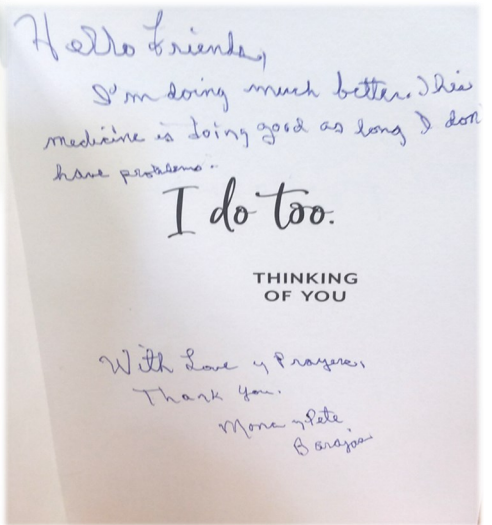 Hello Friends,
I'm doing much better. This
medicine is doing good as long I don
have problems.
I do too.
THINKING
OF YOU
With Love y Prayers,
Thank You.
Mona y Pete
Barajas